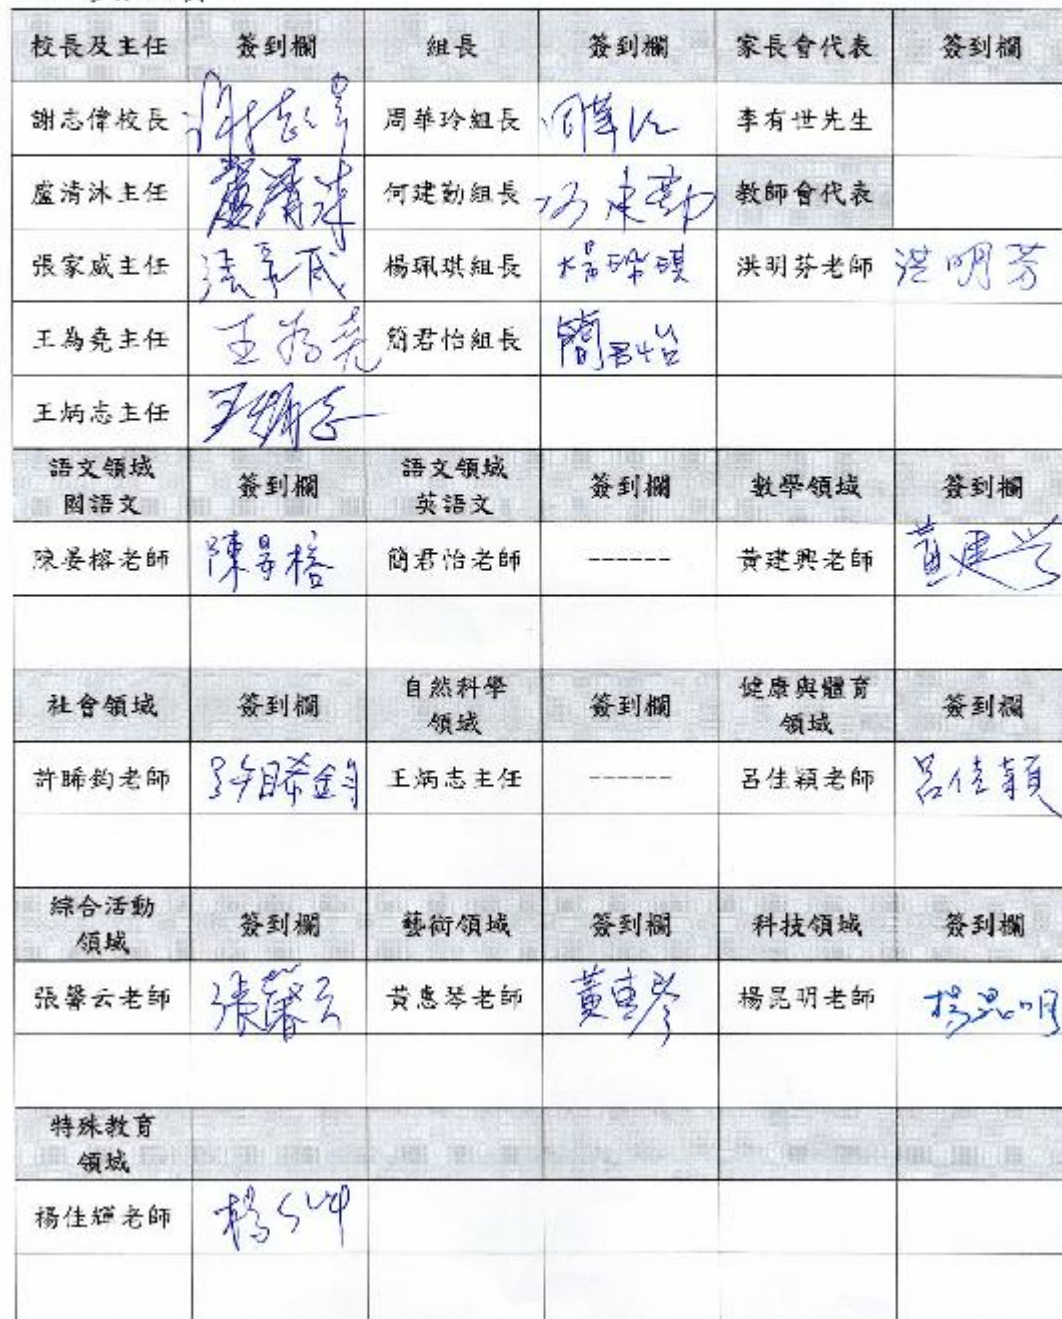 校長及主任 簽到欄 組長 簽到欄 家長會代表 簽到欄
謝志偉校長 周華玲組長 李有世先生
盧清沐主任 盧清沐 何建勤組長 何建勤 教師會代表
張家威主任 張家威 楊珮琪組長 楊珮琪 洪明芬老師 洪明芬
王為堯主任 王為堯 簡君怡組長 簡君怡
王炳志主任 王炳志
語文領域 國語文 簽到欄 語文領域 英語文 簽到欄 數學領域 簽到欄
陳晏榕老師 陳晏榕 簡君怡老師 ------ 黃建興老師 黃建兴
社會領域 簽到欄 自然科學 領域 簽到欄 健康與體育 領域 簽到欄
許睎鈞老師 許睎鈞 王炳志主任 ------ 呂佳穎老師 呂佳穎
綜合活動 領域 簽到欄 藝術領域 簽到欄 科技領域 簽到欄
張馨云老師 張馨云 黃惠琴老師 黃惠琴 楊昆明老師 楊昆明
特殊教育 領域
楊佳輝老師 楊